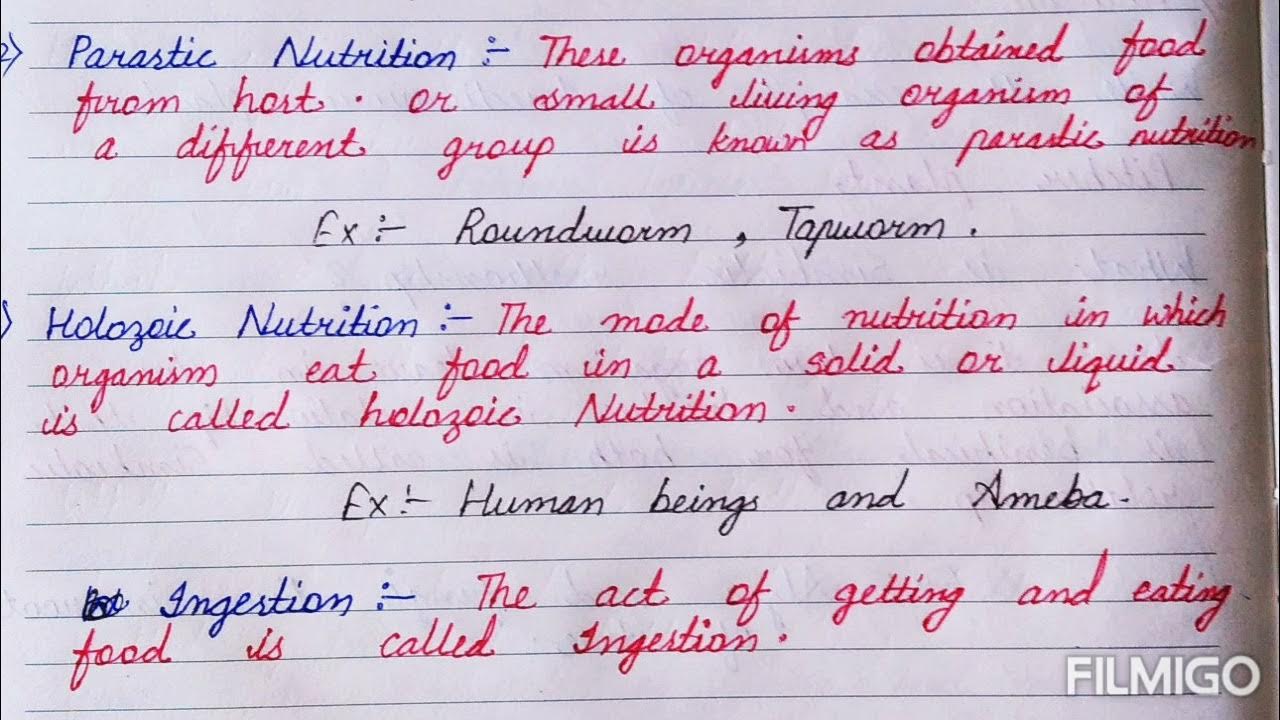 2) Parastic Nutrition :- These organisms obtained food
from host. or small living organism of
a different group is known as parastic nutrition
Ex :- Roundworm , Tapworm .
) Holozoic Nutrition :- The mode of nutrition in which
organism eat food in a solid or liquid
is called holozoic Nutrition .
Ex :- Human beings and Ameba .
Ingestion :- The act of getting and eating
food is called Ingestion .
FILMIGO